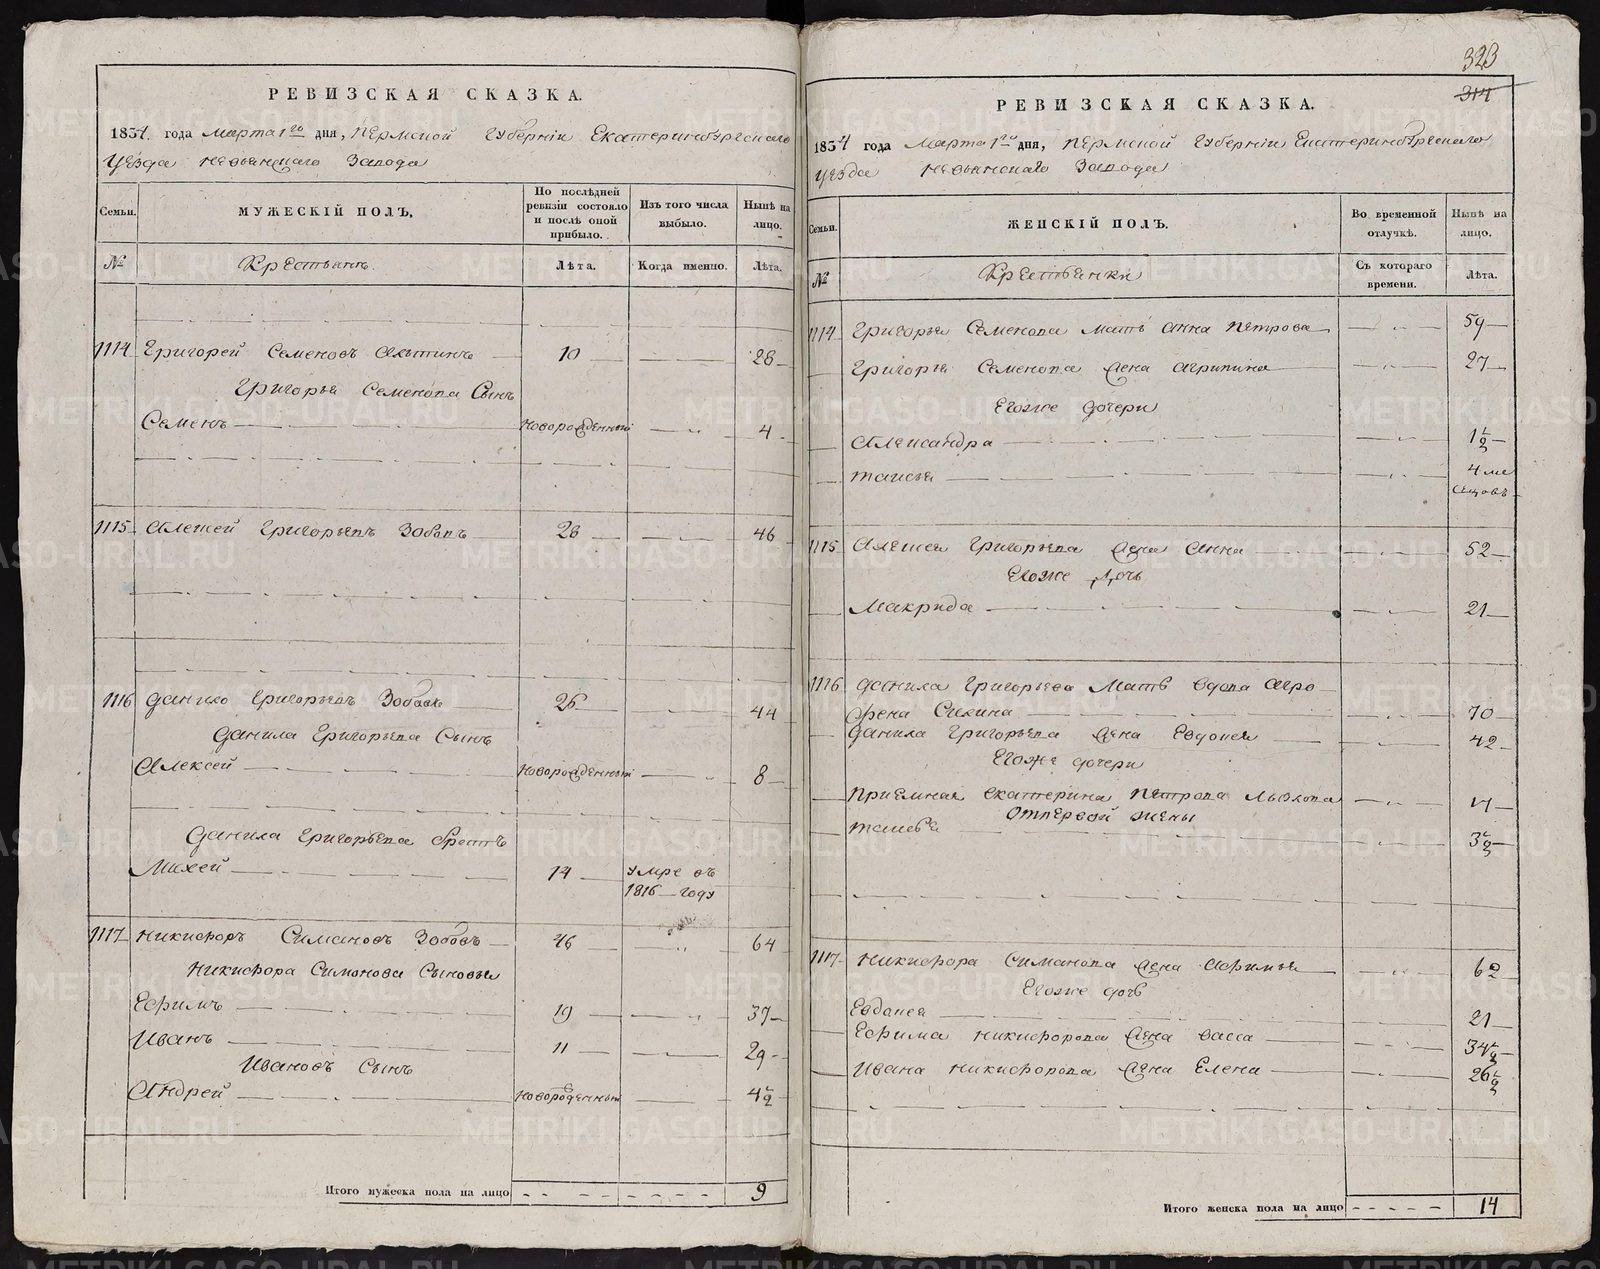 РЕВИЗСКАЯ СКАЗКА.
1834. года Марта 1го дня, Пермской Губерніи Екатеринбургскаго
Уѣзда Невьянскаго Завода
Семьи. МУЖЕСКІЙ ПОЛЪ. По послѣдней ревизіи состояло и послѣ оной прибыло. Изъ того числа выбыло. Нынѣ на лицо.
№ Крестьянъ. Лѣта. Когда именно. Лѣта.
1114 Григорей Семеновъ 10 28
Григорья Семенова Сынъ
Семенъ новорожденный 4
1115 Алексей Григорьевъ Зобовъ 28 46
1116 Данило Григорьевъ Зобовъ 26 44
Данила Григорьева Сынъ
Алексей новорожденный 8
Данила Григорьева братъ
Михей 14 умре въ
1816 году
1117 Никифоръ Симановъ Зобовъ 46 64
Никифора Симонова Сыновья
Ефимъ 19 37
Иванъ 11 29
Ивановъ Сынъ
Андрей новорожденный 4½
Итого мужеска пола на лицо 9
323
314
РЕВИЗСКАЯ СКАЗКА.
1834 года Марта 1го дня, Пермской Губерніи Екатеринбургскаго
Уѣзда Невьянскаго Завода
Семьи. ЖЕНСКІЙ ПОЛЪ. Во временной отлучкѣ. Нынѣ на лицо.
№ Крестьянки Съ котораго времени. Лѣта.
1114 Григорья Семенова мать Анна Петрова 59
Григорья Семенова жена Агрипина 27
Егоже дочери
Александра 1½
Таисья 4 ме
сяцовъ
1115 Алексея Григорьева жена Анна 52
Егоже дочь
Макрида 21
1116 Данила Григорьева Мать вдова Агро
фена 70
Данила Григорьева жена Евдокея 42
Егоже дочери
Приемная Екатерина Петрова 17
От первой жены
Таисья 3½
1117 Никифора Симанова жена Афимья 62
Егоже дочь
Евдокея 21
Ефима Никифорова жена Васса 34½
Ивана Никифорова жена Елена 26½
Итого женска пола на лицо 14
METRIKI.GASO-URAL.RU